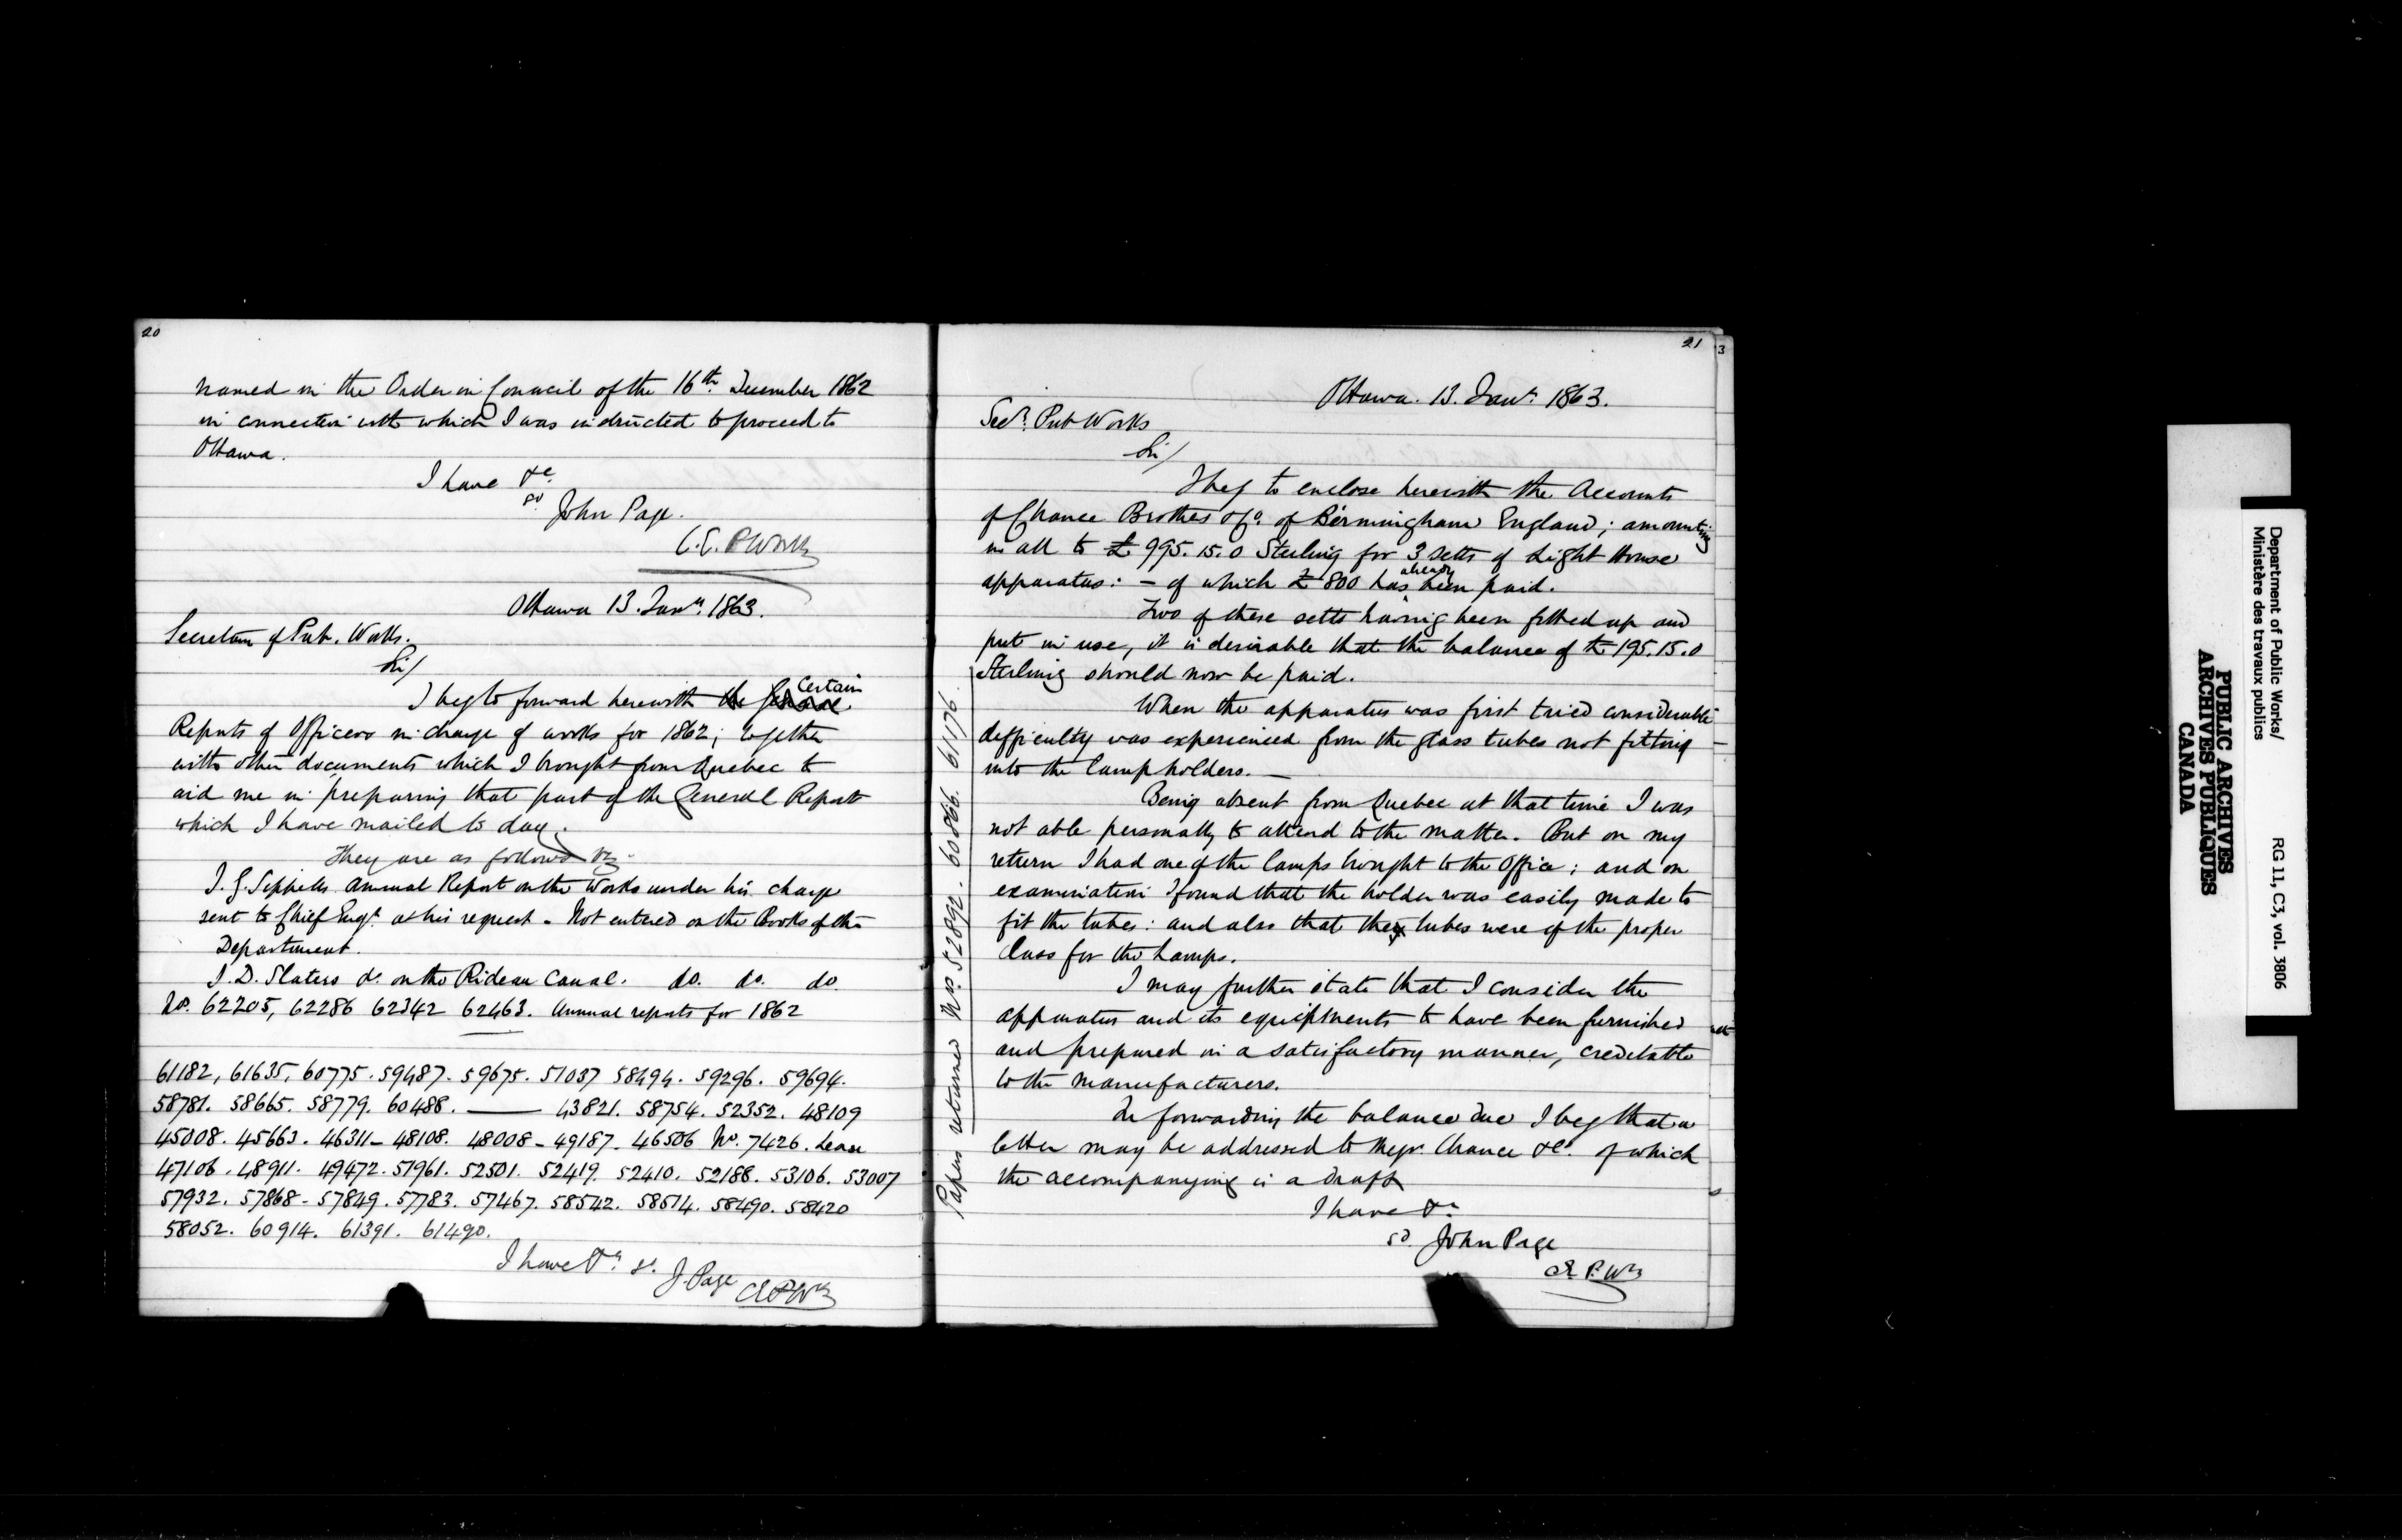 20
named in the Order in Council of the 16th December 1862
in connection with which I was instructed to proceed to
Ottawa.
I have &c.
sd John Page.
C.E. P Works
Ottawa 13. Jany. 1863.
Secretary of Pub. Works.
Sir/
I beg to forward herewith the General Certain
Reports of Officers in charge of works for 1862; together
with other documents which I brought from Quebec to
aid me in preparing that part of the General Report
which I have mailed to day.
They are as follows viz.
J. G. Sippells Annual Report on the Works under his charge
sent to Chief Engr. at his request - Not entered on the Books of the
Department.
J. D. Slaters do. on the Rideau Canal. do. do. do.
No. 62205, 62286 62342 62463. Annual reports for 1862
61182, 61635, 60775. 59487. 59675. 51037 58494. 59296. 59694.
58781. 58665. 58779. 60488. — 43821. 58754. 52352. 48109
45008. 45663. 46311 - 48108. 48008 - 49187 - 46506 No. 7426. Lease
47106. 48911. 49472. 51961. 52501. 52419. 52410. 52188. 53106. 53007
57932. 57868 - 57849. 57783. 57467. 58542. 58514. 58490. 58420
58052. 60914. 61391. 61490.
I have &c. sd. J. Page
CEPWks
21
3
Ottawa. 13. Jany. 1863.
Secy. Pub Works
Sir/
I beg to enclose herewith the Accounts
of Chance Brothers & Co. of Birmingham England; amounting
in all to £995.15.0 Sterling for 3 setts of Light House
apparatus: - of which £800 has already been paid.
Two of these setts having been fitted up and
put in use, it is desirable that the balance of £195.15.0
Sterling should now be paid.
When the apparatus was first tried considerable
difficulty was experienced from the glass tubes not fitting
into the lamp holders. -
Being absent from Quebec at that time I was
not able personally to attend to the matter. But on my
return I had one of the lamps brought to the Office; and on
examination I found that the holder was easily made to
fit the tubes: and also that they tubes were of the proper
class for the Lamps.
I may further state that I consider the
apparatus and its equipments to have been furnished
and prepared in a satisfactory manner, creditable
to the manufacturers.
In forwarding the balance due I beg that a
letter may be addressed to Messr. Chance & Co. of which
the accompanying is a draft
I have &c.
sd. John Page
CE P. Wks
Papers returned Nos. 52892. 60866. 61176.
Department of Public Works/
Ministère des travaux publics
RG 11, C3, vol. 3806
PUBLIC ARCHIVES
ARCHIVES PUBLIQUES
CANADA